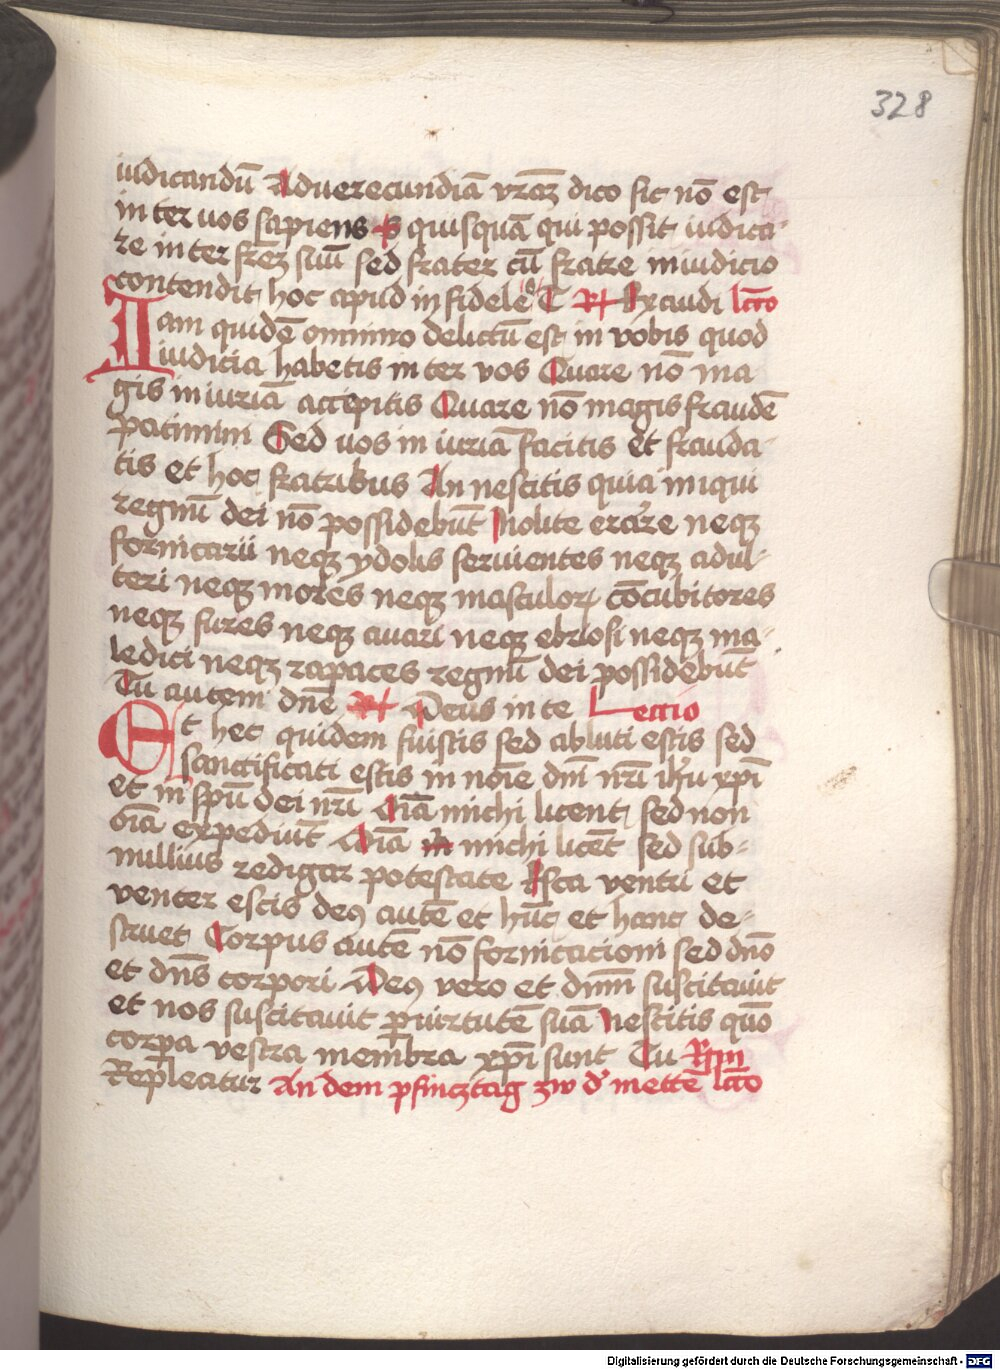 328
iudicandū Aduerecundiā vr̄aꝫ dico sic nō est
inter uos sapiens quisquā qui possit iudica-
re inter fr̄eꝫ suū sed frater cū fratre in iudicio
contendit hoc apud infidele T R Exaudi lc̄co
Iam quidē omnino delictū est in vobis quod
iudicia habetis inter vos Quare nō ma
gis iniuriā accepitis Quare nō magis fraudē
patimini Sed uos iniuriā facitis et frauda-
tis et hoc fratribus An nescitis quia iniqui
regnū dei nō possidebūt Nolite errare neqꝫ
fornicarii neqꝫ ydolis seruientes neqꝫ adul-
teri neqꝫ molles neqꝫ masculoꝝ cōcubitores
neqꝫ fures neqꝫ auari neqꝫ ebriosi neqꝫ ma-
ledici neqꝫ rapaces regnū dei possidebūt
Tu autem dn̄e R Deus in te Lectio
Et hec quidem fuistis sed abluti estis sed
sanctificati estis in noīe dn̄i nr̄i ih̄u xp̄i
et in sp̄u dei nr̄i Oīa michi licent sed non
oīa expediūt Oīa michi licēt sed sub-
nullius redigar potestate Esca ventri et
venter escis deꝯ autē et hūc et hanc de-
struet Corpus autē nō fornicacioni sed dn̄o
et dn̄s corpori Deꝯ vero et dn̄m suscitauit
et nos suscitauit ꝑ uirtutē suā Nescitis quō
corꝑa vestra membra xp̄i sunt Tu Rm̄
Repleatur An dem pfincztag zw d' mettē lc̄co
Digitalisierung gefördert durch die Deutsche Forschungsgemeinschaft - DFG